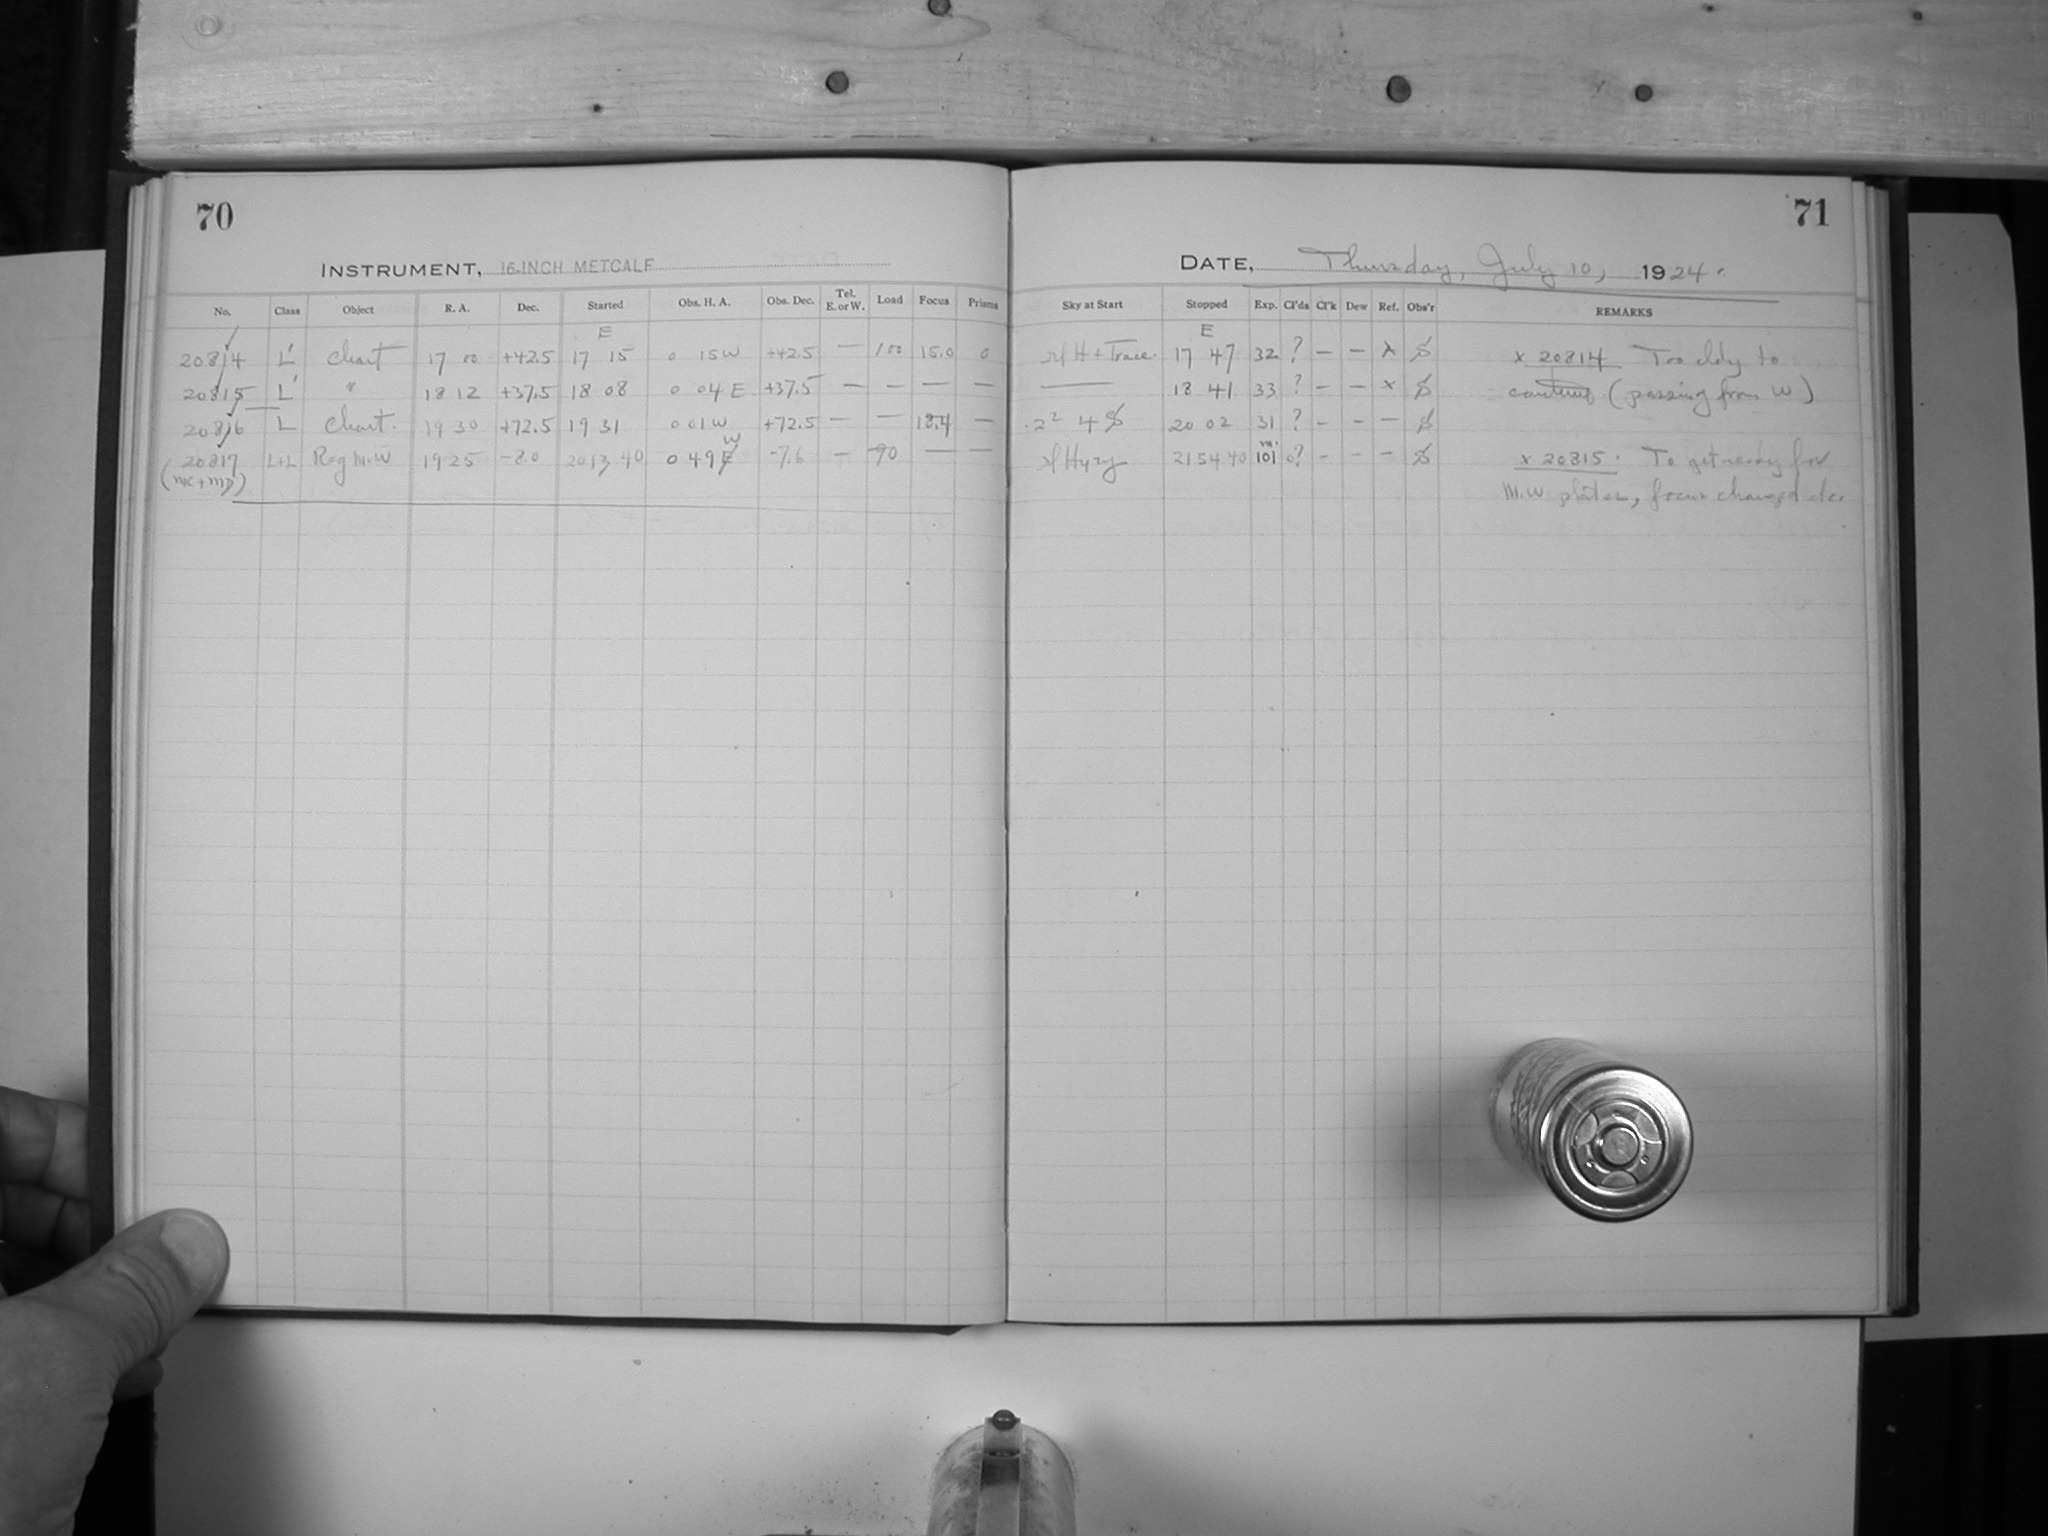 70
71
INSTRUMENT, 16-INCH METCALF
DATE, Thursday, July 10, 1924.
No. Class Object R. A. Dec. Started Obs. H. A. Obs. Dec. Tel. E. or W. Load Focus Prisms Sky at Start Stopped Exp. Cl'ds Cl'k Dew Ref. Obs'r REMARKS
E E
20814 L' Chart 17 00 +42.5 17 15 0 15 W +42.5 — 100 15.0 0 H + Trace. 17 47 32 ? — — x x 20814 Too cldy to
20815 L' " 18 12 +37.5 18 08 0 04 E +37.5 — — — — —— 18 41 33 ? — — x continue (passing from W)
20816 L Chart. 19 30 +72.5 19 31 0 01 W +72.5 — — 18.4 — 2² 4 20 02 31 ? — — —
20817 L+L Reg M.W 19 25 -8.0 20 13 40 0 49 W -7.6 — 90 — — Hyzy 21 54 40 101 m. 0? — — — x 20815. To get ready for
(MC + MD) M.W plates, focus changed etc.